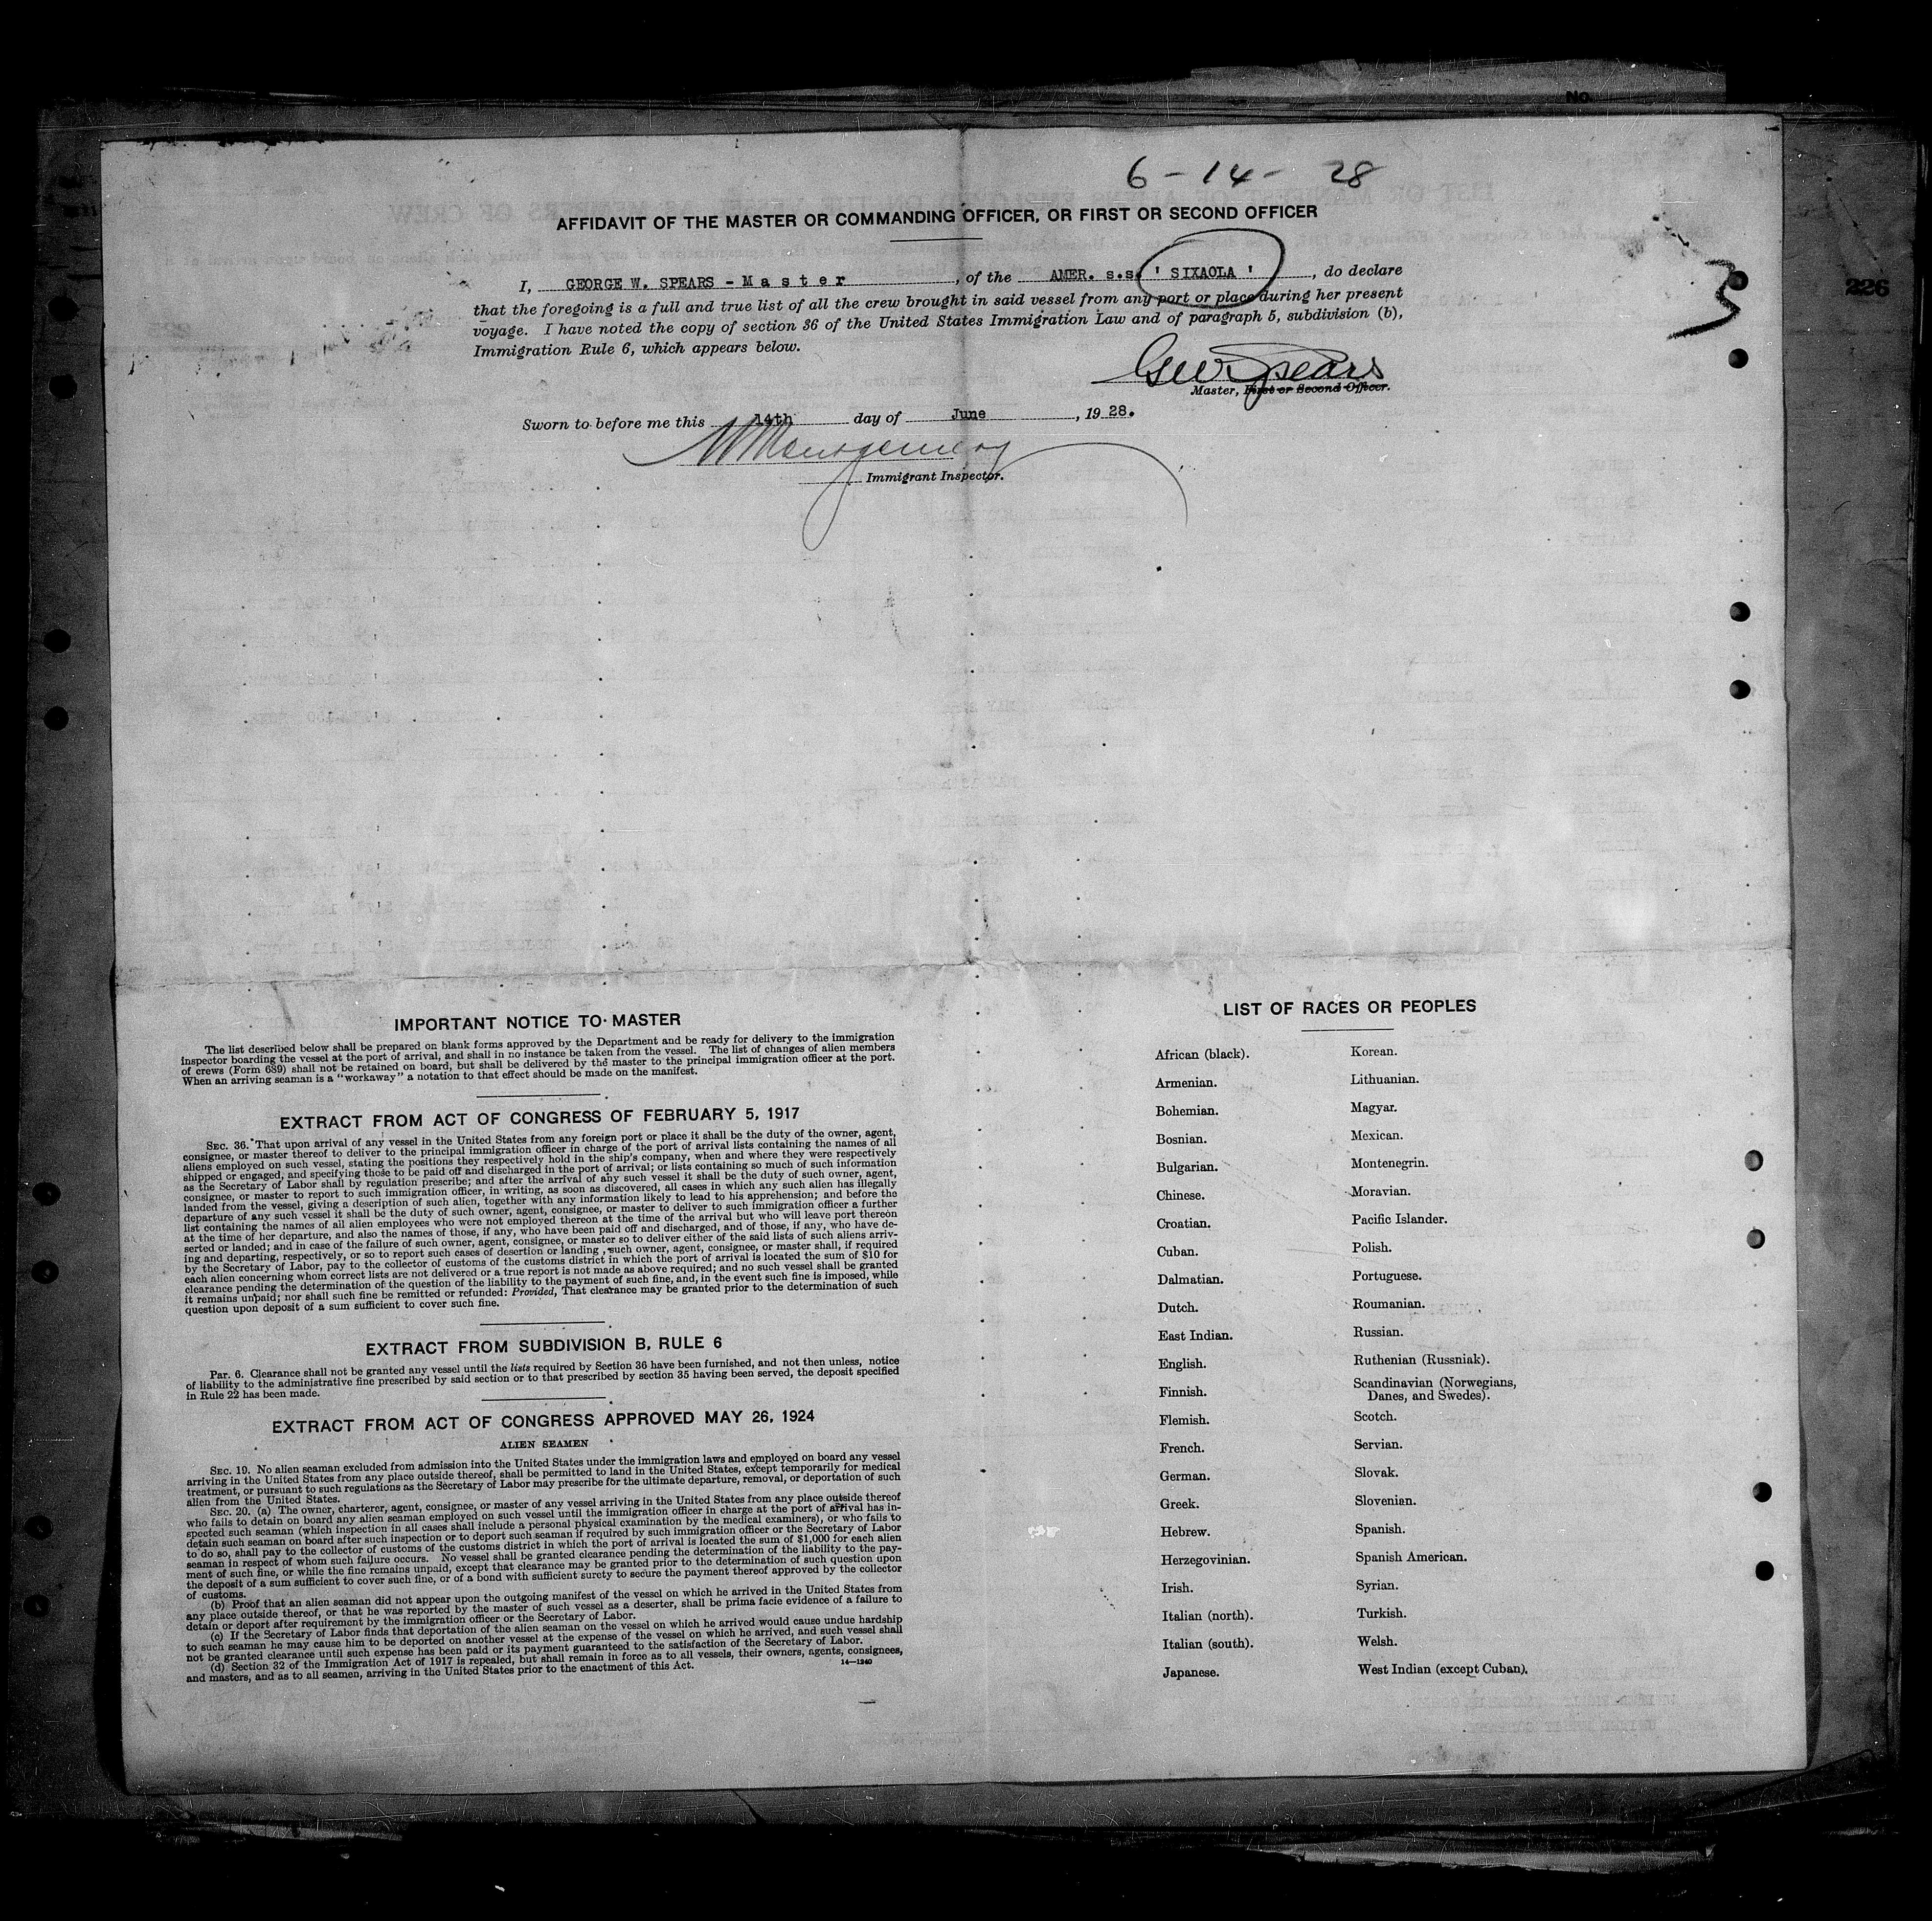 No.
226
6-14-28
3
AFFIDAVIT OF THE MASTER OR COMMANDING OFFICER, OR FIRST OR SECOND OFFICER
I, GEORGE W. SPEARS - Master, of the AMER. s.s. ' SIXAOLA ', do declare
that the foregoing is a full and true list of all the crew brought in said vessel from any port or place during her present
voyage. I have noted the copy of section 36 of the United States Immigration Law and of paragraph 5, subdivision (b),
Immigration Rule 6, which appears below.
Geo W Spears
Master, First or Second Officer.
Sworn to before me this 14th day of June, 1928.
Immigrant Inspector.
IMPORTANT NOTICE TO MASTER
The list described below shall be prepared on blank forms approved by the Department and be ready for delivery to the immigration
inspector boarding the vessel at the port of arrival, and shall in no instance be taken from the vessel. The list of changes of alien members
of crews (Form 689) shall not be retained on board, but shall be delivered by the master to the principal immigration officer at the port.
When an arriving seaman is a "workaway" a notation to that effect should be made on the manifest.
EXTRACT FROM ACT OF CONGRESS OF FEBRUARY 5, 1917
SEC. 36. That upon arrival of any vessel in the United States from any foreign port or place it shall be the duty of the owner, agent,
consignee, or master thereof to deliver to the principal immigration officer in charge of the port of arrival lists containing the names of all
aliens employed on such vessel, stating the positions they respectively hold in the ship's company, when and where they were respectively
shipped or engaged, and specifying those to be paid off and discharged in the port of arrival; or lists containing so much of such information
as the Secretary of Labor shall by regulation prescribe; and after the arrival of any such vessel it shall be the duty of such owner, agent,
consignee, or master to report to such immigration officer, in writing, as soon as discovered, all cases in which any such alien has illegally
landed from the vessel, giving a description of such alien, together with any information likely to lead to his apprehension; and before the
departure of any such vessel it shall be the duty of such owner, agent, consignee, or master to deliver to such immigration officer a further
list containing the names of all alien employees who were not employed thereon at the time of the arrival but who will leave port thereon
at the time of her departure, and also the names of those, if any, who have been paid off and discharged, and of those, if any, who have de-
serted or landed; and in case of the failure of such owner, agent, consignee, or master so to deliver either of the said lists of such aliens arriv-
ing and departing, respectively, or so to report such cases of desertion or landing, such owner, agent, consignee, or master shall, if required
by the Secretary of Labor, pay to the collector of customs of the customs district in which the port of arrival is located the sum of $10 for
each alien concerning whom correct lists are not delivered or a true report is not made as above required; and no such vessel shall be granted
clearance pending the determination of the question of the liability to the payment of such fine, and, in the event such fine is imposed, while
it remains unpaid; nor shall such fine be remitted or refunded: Provided, That clearance may be granted prior to the determination of such
question upon deposit of a sum sufficient to cover such fine.
EXTRACT FROM SUBDIVISION B, RULE 6
Par. 6. Clearance shall not be granted any vessel until the lists required by Section 36 have been furnished, and not then unless, notice
of liability to the administrative fine prescribed by said section or to that prescribed by section 35 having been served, the deposit specified
in Rule 22 has been made.
EXTRACT FROM ACT OF CONGRESS APPROVED MAY 26, 1924
ALIEN SEAMEN
SEC. 19. No alien seaman excluded from admission into the United States under the immigration laws and employed on board any vessel
arriving in the United States from any place outside thereof, shall be permitted to land in the United States, except temporarily for medical
treatment, or pursuant to such regulations as the Secretary of Labor may prescribe for the ultimate departure, removal, or deportation of such
alien from the United States.
SEC. 20. (a) The owner, charterer, agent, consignee, or master of any vessel arriving in the United States from any place outside thereof
who fails to detain on board any alien seaman employed on such vessel until the immigration officer in charge at the port of arrival has in-
spected such seaman (which inspection in all cases shall include a personal physical examination by the medical examiners), or who fails to
detain such seaman on board after such inspection or to deport such seaman if required by such immigration officer or the Secretary of Labor
to do so, shall pay to the collector of customs of the customs district in which the port of arrival is located the sum of $1,000 for each alien
seaman in respect of whom such failure occurs. No vessel shall be granted clearance pending the determination of the liability to the pay-
ment of such fine, or while the fine remains unpaid, except that clearance may be granted prior to the determination of such question upon
the deposit of a sum sufficient to cover such fine, or of a bond with sufficient surety to secure the payment thereof approved by the collector
of customs.
(b) Proof that an alien seaman did not appear upon the outgoing manifest of the vessel on which he arrived in the United States from
any place outside thereof, or that he was reported by the master of such vessel as a deserter, shall be prima facie evidence of a failure to
detain or deport after requirement by the immigration officer or the Secretary of Labor.
(c) If the Secretary of Labor finds that deportation of the alien seaman on the vessel on which he arrived would cause undue hardship
to such seaman he may cause him to be deported on another vessel at the expense of the vessel on which he arrived, and such vessel shall
not be granted clearance until such expense has been paid or its payment guaranteed to the satisfaction of the Secretary of Labor.
(d) Section 32 of the Immigration Act of 1917 is repealed, but shall remain in force as to all vessels, their owners, agents, consignees,
and masters, and as to all seamen, arriving in the United States prior to the enactment of this Act.
14—1240
LIST OF RACES OR PEOPLES
African (black).
Armenian.
Bohemian.
Bosnian.
Bulgarian.
Chinese.
Croatian.
Cuban.
Dalmatian.
Dutch.
East Indian.
English.
Finnish.
Flemish.
French.
German.
Greek.
Hebrew.
Herzegovinian.
Irish.
Italian (north).
Italian (south).
Japanese.
Korean.
Lithuanian.
Magyar.
Mexican.
Montenegrin.
Moravian.
Pacific Islander.
Polish.
Portuguese.
Roumanian.
Russian.
Ruthenian (Russniak).
Scandinavian (Norwegians,
Danes, and Swedes).
Scotch.
Servian.
Slovak.
Slovenian.
Spanish.
Spanish American.
Syrian.
Turkish.
Welsh.
West Indian (except Cuban).